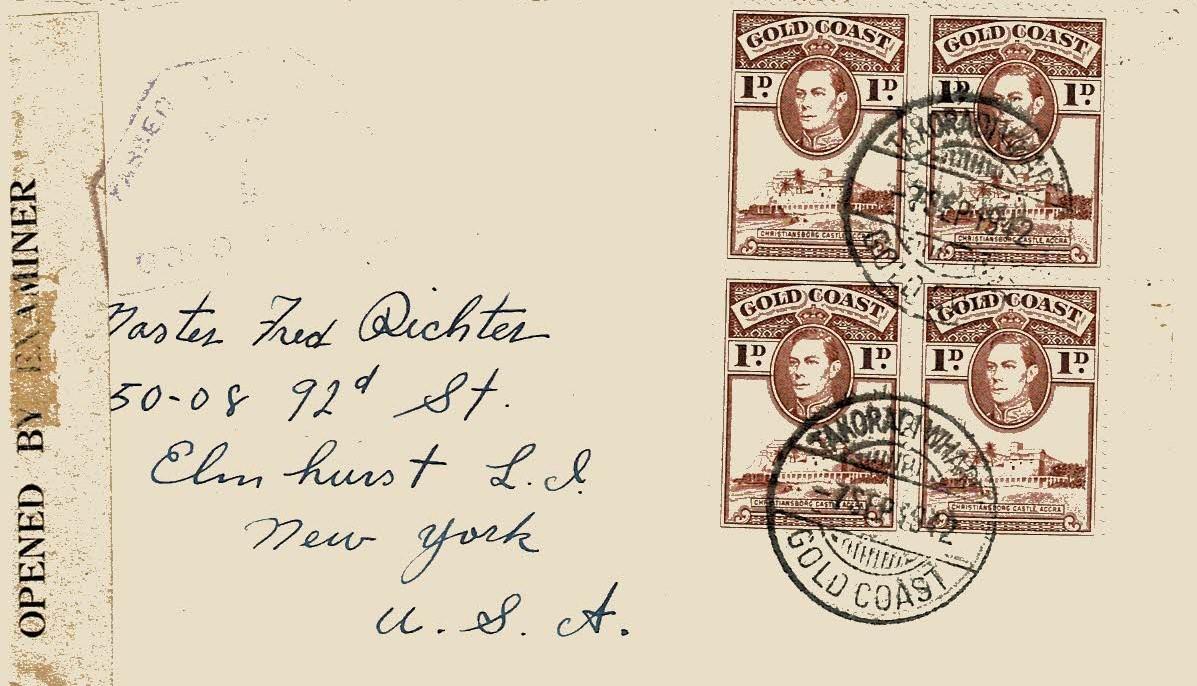 OPENED BY EXAMINER
GOLD COAST
1D. 1D.
CHRISTIANSBORG CASTLE, ACCRA
GOLD COAST
1D. 1D.
CHRISTIANSBORG CASTLE, ACCRA
TAKORADI WHARF
-7 SEP 1942
GOLD
GOLD COAST
1D. 1D.
CHRISTIANSBORG CASTLE, ACCRA
GOLD COAST
1D. 1D.
CHRISTIANSBORG CASTLE, ACCRA
TAKORADI WHARF
-7 SEP 1942
GOLD COAST
Master Fred Richter
50-08 92d St.
Elmhurst L.I.
New York
U.S.A.